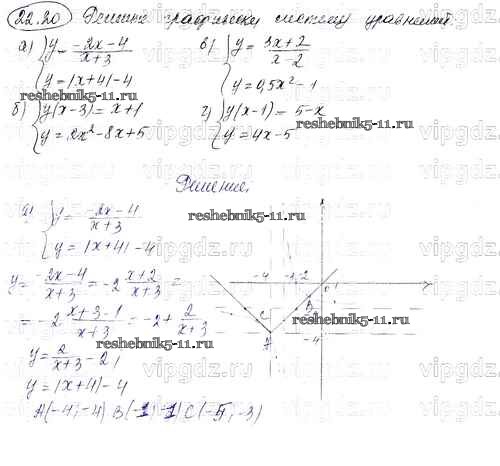 22.20 Решите графически систему уравнений
а) { y = -2x-4 / x+3
y = |x+4| - 4
в) { y = 3x+2 / x-2
y = 0,5x² - 1
reshebnik5-11.ru
б) { y(x-3) = x+1
y = 2x² - 8x + 5
г) { y(x-1) = 5-x
y = 4x - 5
reshebnik5-11.ru
Решение.
а) { y = -2x-4 / x+3
y = |x+4| - 4
reshebnik5-11.ru
y = -2x-4 / x+3 = -2 x+2 / x+3 =
= -2 x+3-1 / x+3 = -2 + 2 / x+3
reshebnik5-11.ru
y = 2 / x+3 - 2,
y = |x+4| - 4
A(-4; -4) B(-1; -1) C(-5; -3)
-4 -2 0 1
C B
A -4
reshebnik5-11.ru
vipgdz.ru